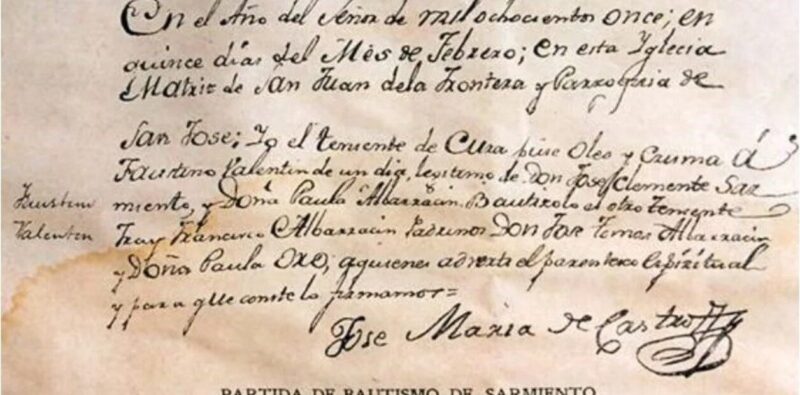 En el Año del Señor de mil ochocientos once; en
quince dias del Mes de Febrero; en esta Yglecia
Matriz de San Juan dela Frontera y Parroquia de
San Jose; Yo el teniente de Cura puse Oleo y Crisma á
Faustino Valentin de un dia, legitimo de Don Jose Clemente Sar
miento, y Doña Paula Albarracin. Bautizolo el otro Teniente
Faustino
Valentin
Fray Francisco Albarracin Padrinos Don Jose Tomas Albarracin
y Doña Paula Oro; aquienes adverti el parentesco Espiritual
y para que conste lo firmamos=
Jose Maria de Castro
PARTIDA DE BAUTISMO DE SARMIENTO